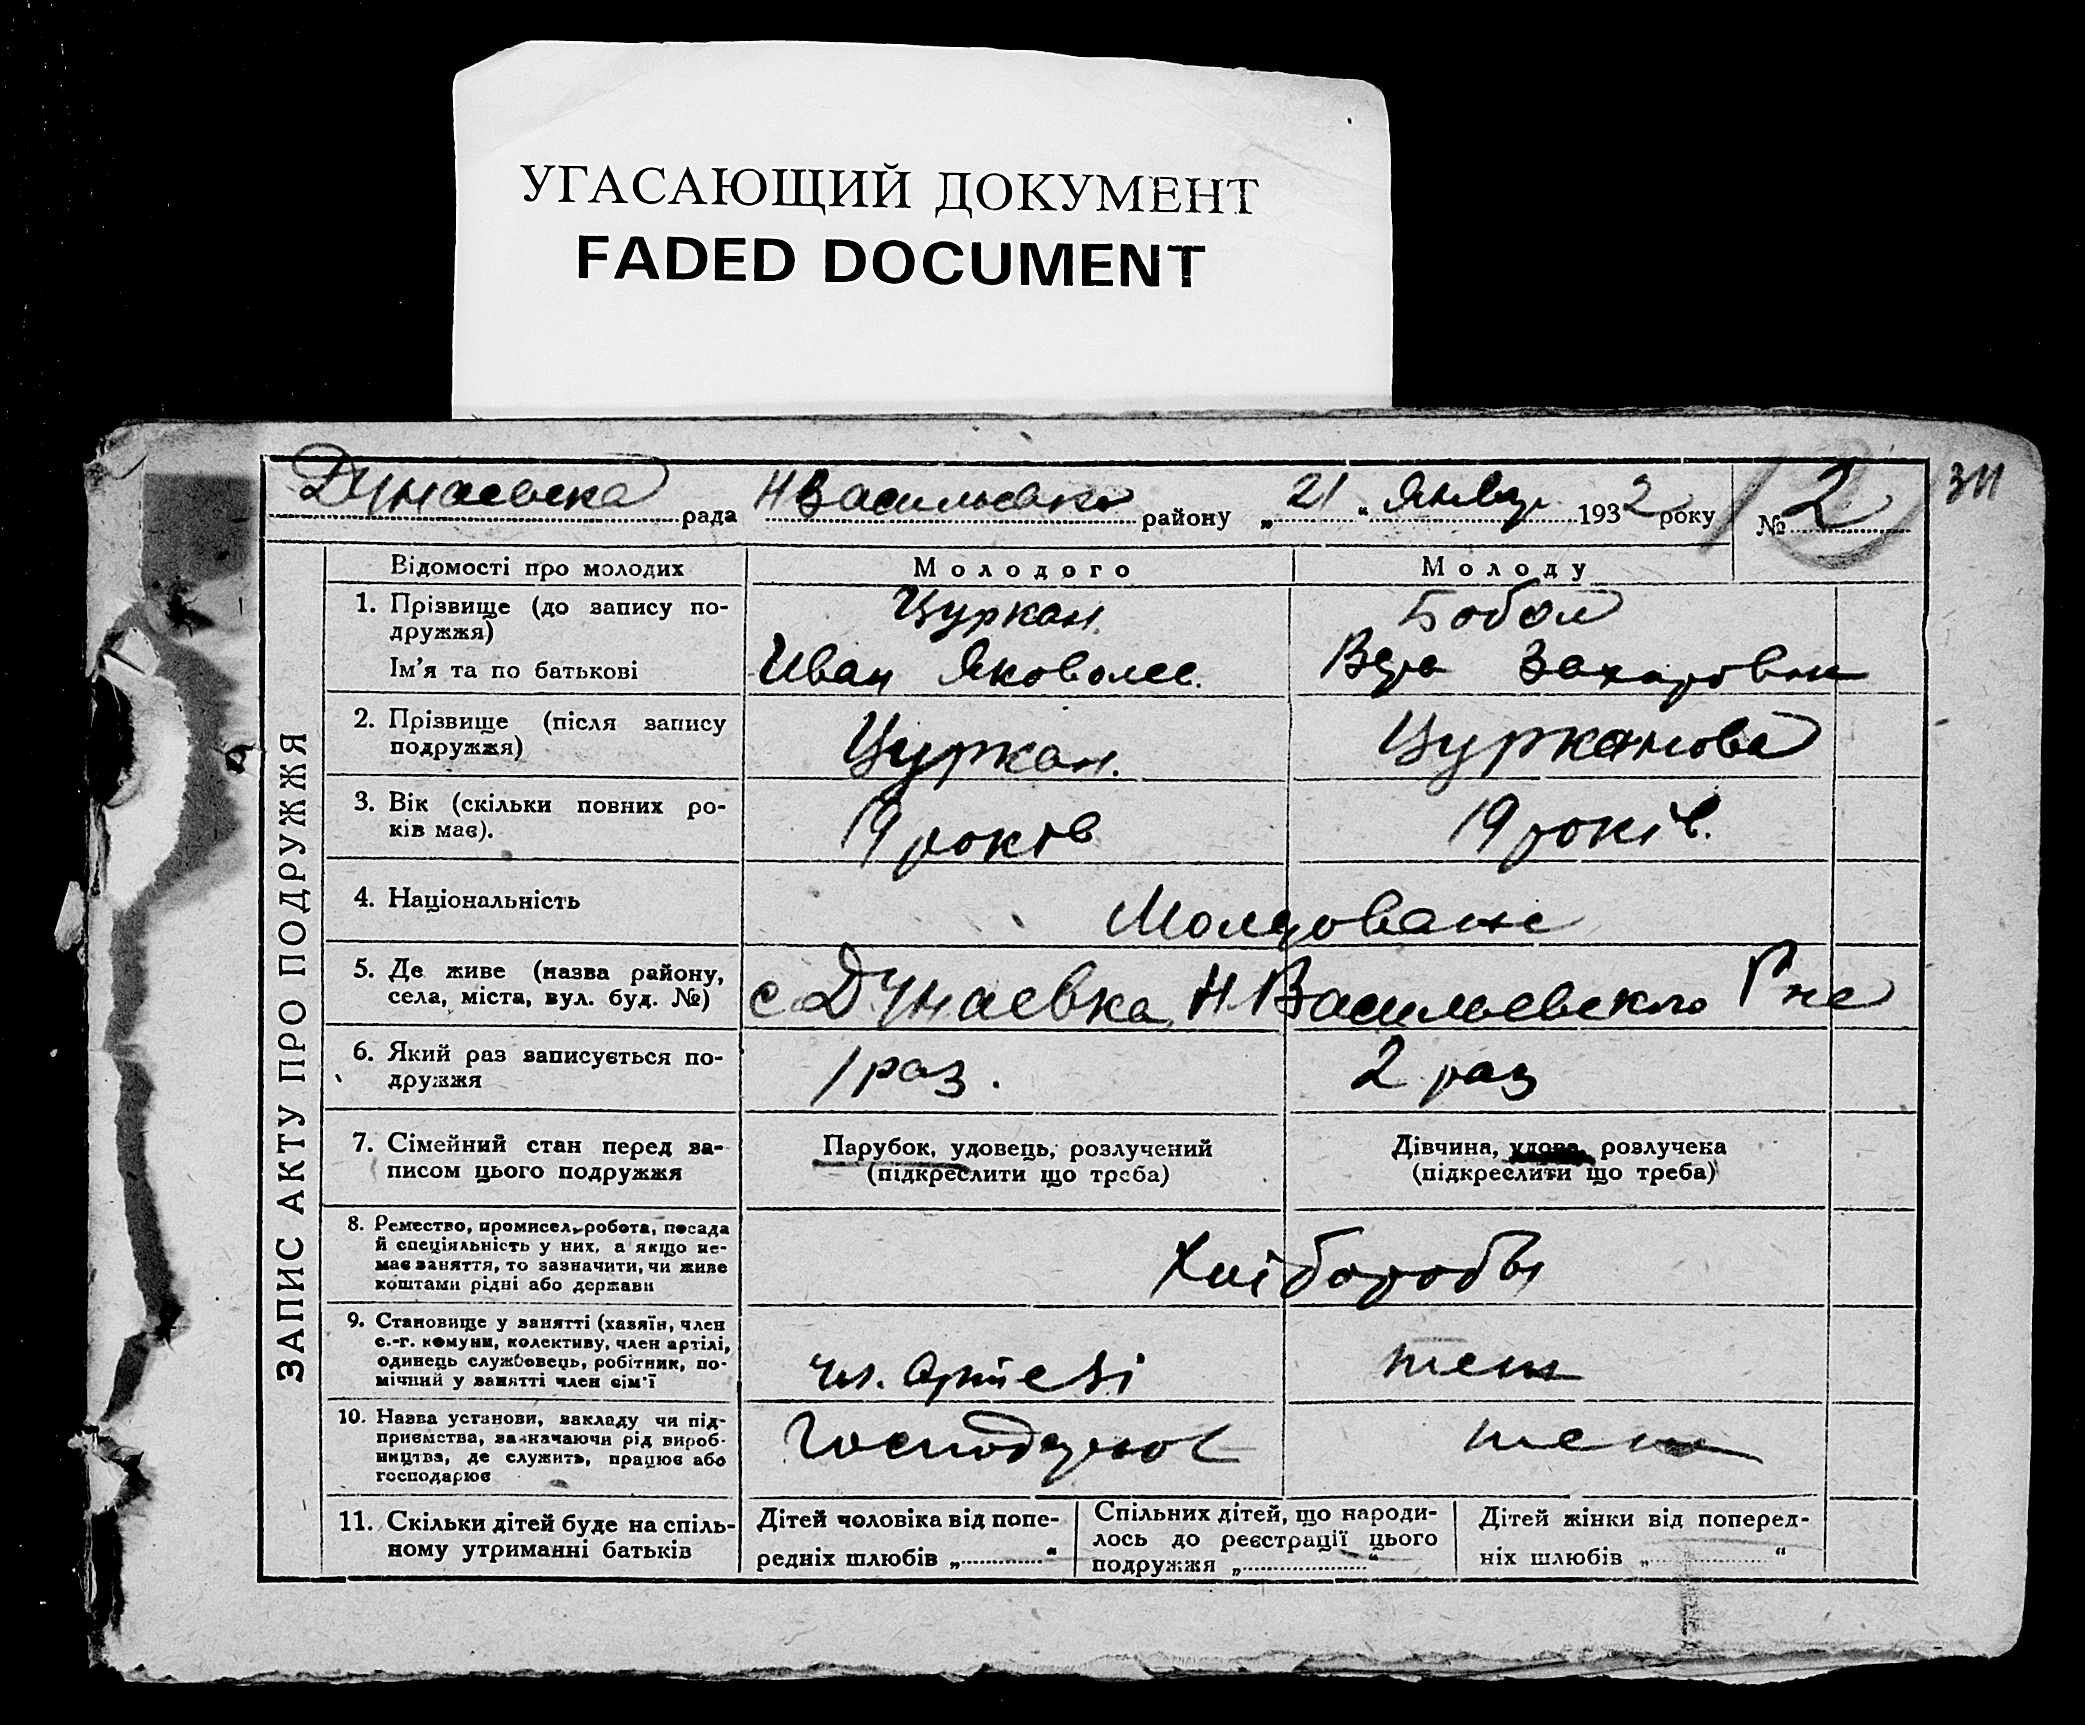 УГАСАЮЩИЙ ДОКУМЕНТ
FADED DOCUMENT
Дунаевска рада Н Васильевка району „21“ Январ 1932 року № 2
311
ЗАПИС АКТУ ПРО ПОДРУЖЖЯ
Відомості про молодих Молодого Молоду
1. Прізвище (до запису по-
дружжя)
Цуркан Бобал
Ім'я та по батькові Иван Яковлев. Вера Захаровна
2. Прізвище (після запису
подружжя)
Цуркан. Цурканова
3. Вік (скільки повних ро-
ків має).
19 років 19 років.
4. Національність Молдоване
5. Де живе (назва району,
села, міста, вул. буд. №)
с Дунаевка Н. Васильевского Р не
6. Який раз записується по-
дружжя
1 раз. 2 раз
7. Сімейний стан перед за-
писом цього подружжя
Парубок, удовець, розлучений
(підкреслити що треба)
Дівчина, удова, розлучена
(підкреслити що треба)
8. Ремество, промисел, робота, посада
й спеціяльність у них, а якщо не-
має заняття, то зазначити, чи живе
коштами рідні або держави
Хліборобы
9. Становище у занятті (хазяїн, член
с.-г. комуни, колективу, член артілі,
одинець службовець, робітник, по-
мічний у занятті член сім'ї
чл. Артелі теж
10. Назва установи, закладу чи під-
приємства, зазначаючи рід вироб-
ництва, де служить, працює або
господарює
Господарює теж
11. Скільки дітей буде на спіль-
ному утриманні батьків
Дітей чоловіка від попе-
редніх шлюбів „ “
Спільних дітей, що народи-
лось до реєстрації цього
подружжя „ “
Дітей жінки від поперед-
ніх шлюбів „ “